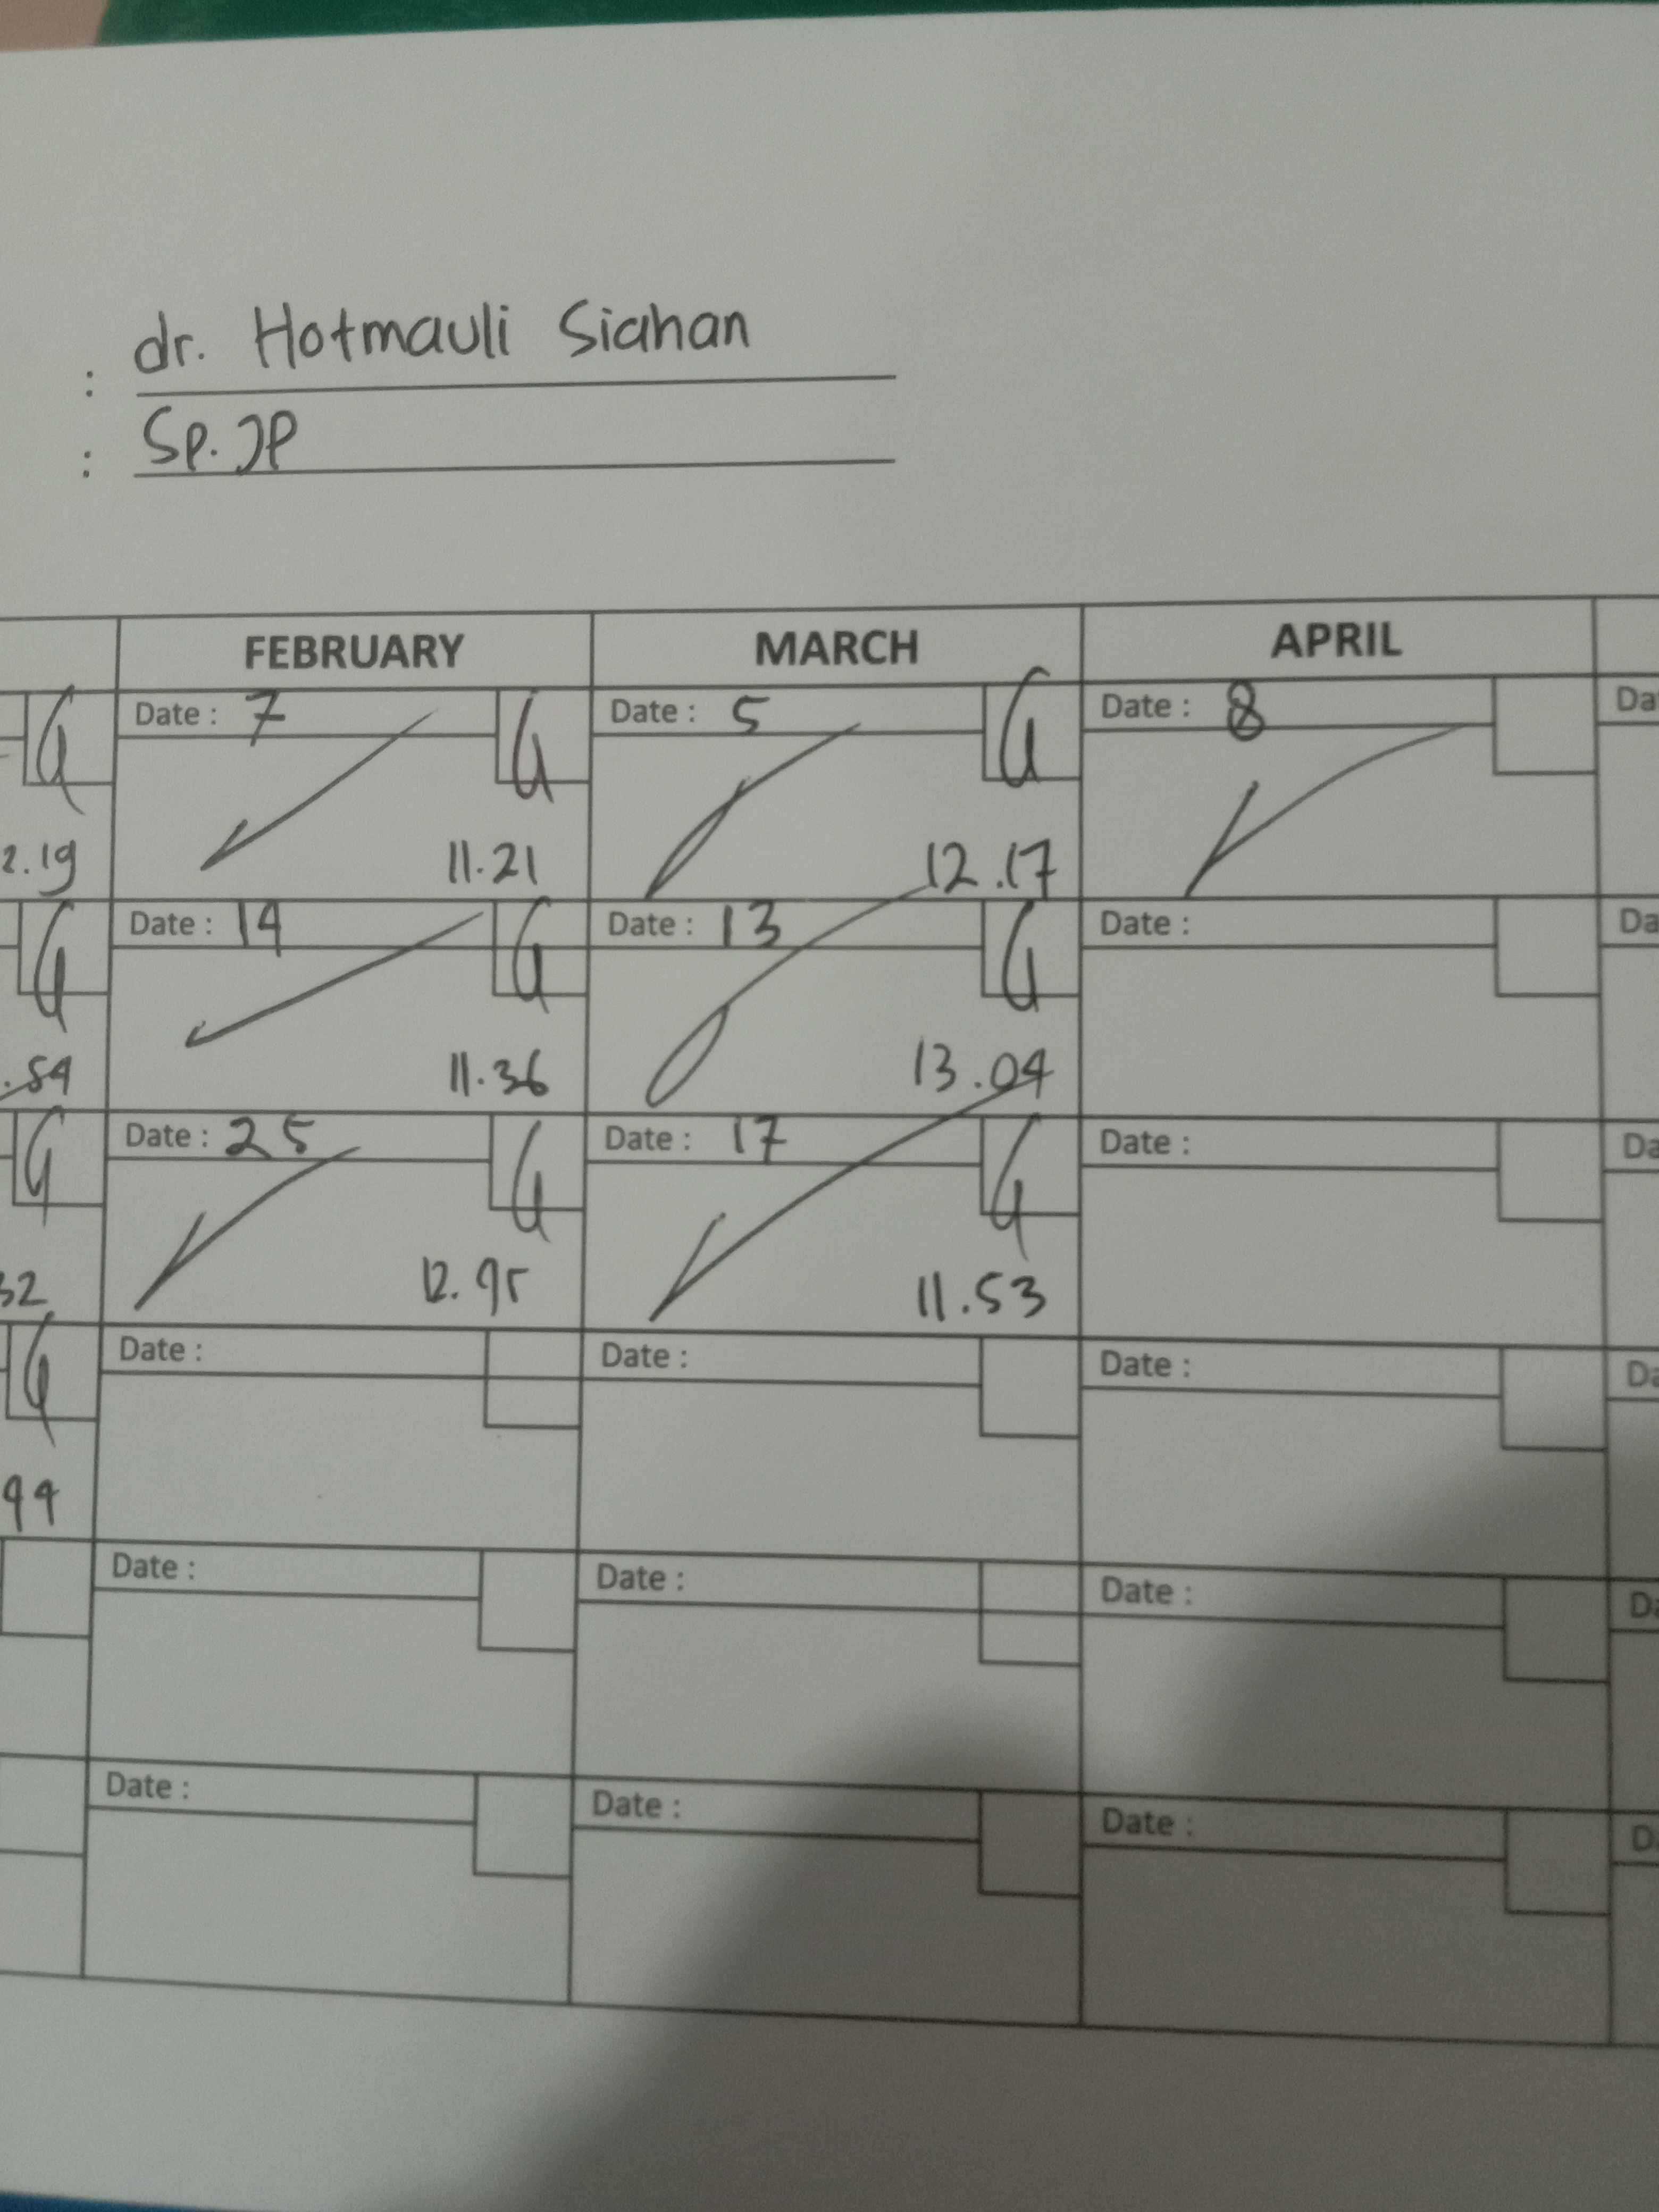 : dr. Hotmauli Siahan
: Sp. JP
FEBRUARY MARCH APRIL
Date : 7 Date : 5 Date : 8 Da
2.19 11.21 12.17
Date : 14 Date : 13 Date : Da
.54 11.36 13.04
Date : 25 Date : 17 Date : Da
32 11.53
Date : Date : Date : Da
44
Date : Date : Date : Da
Date : Date : Date : D